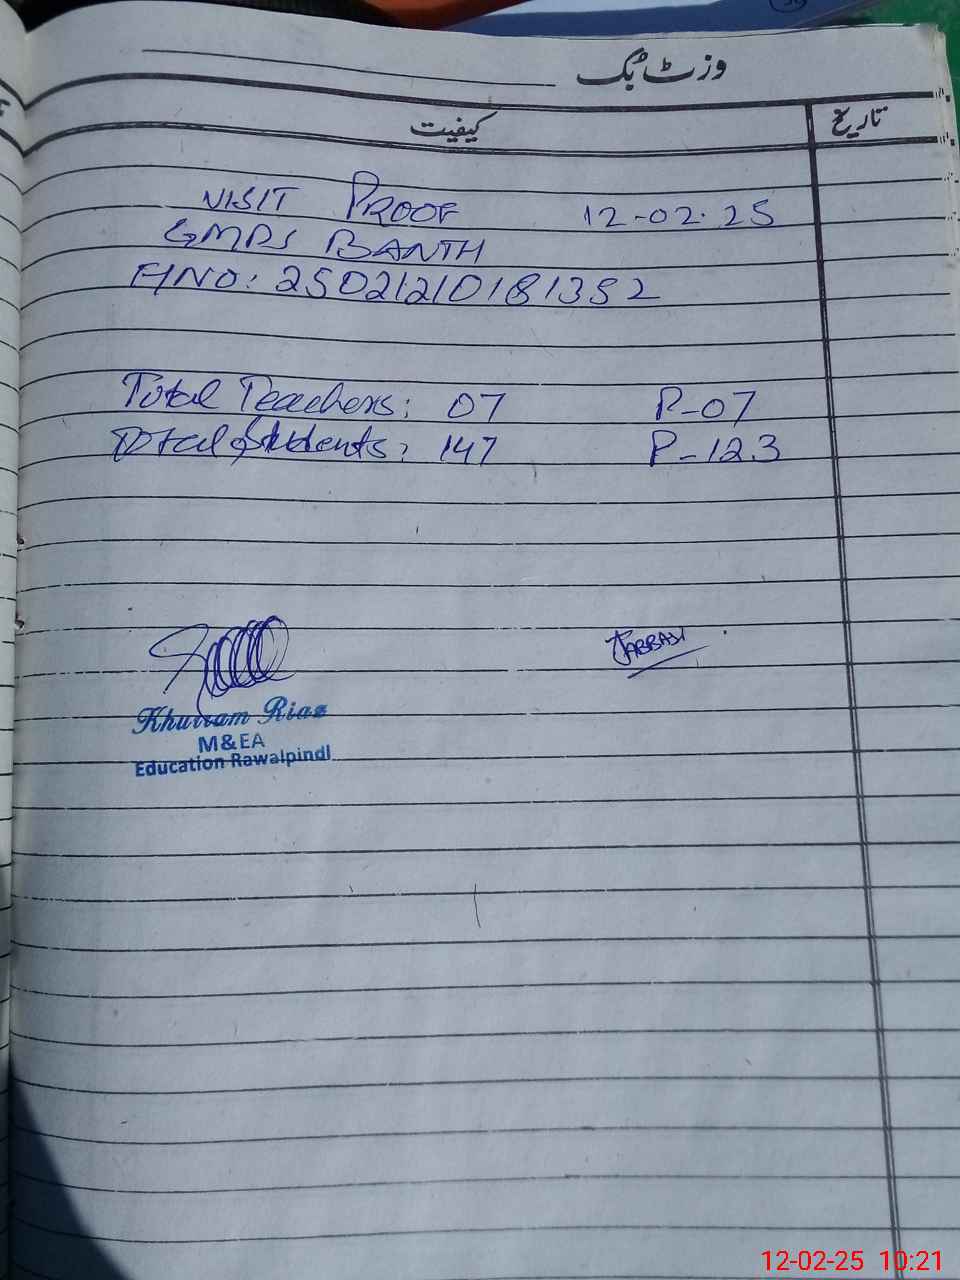 وزٹ بک
کیفیت تاریخ
VISIT PROOF 12-02-25
GMPS BANTH
F/NO: 25021210181352
Total Teachers: 07 P-07
Total Students: 147 P-123
JABBASI
Khurram Riaz
M&EA
Education Rawalpindi
12-02-25 10:21